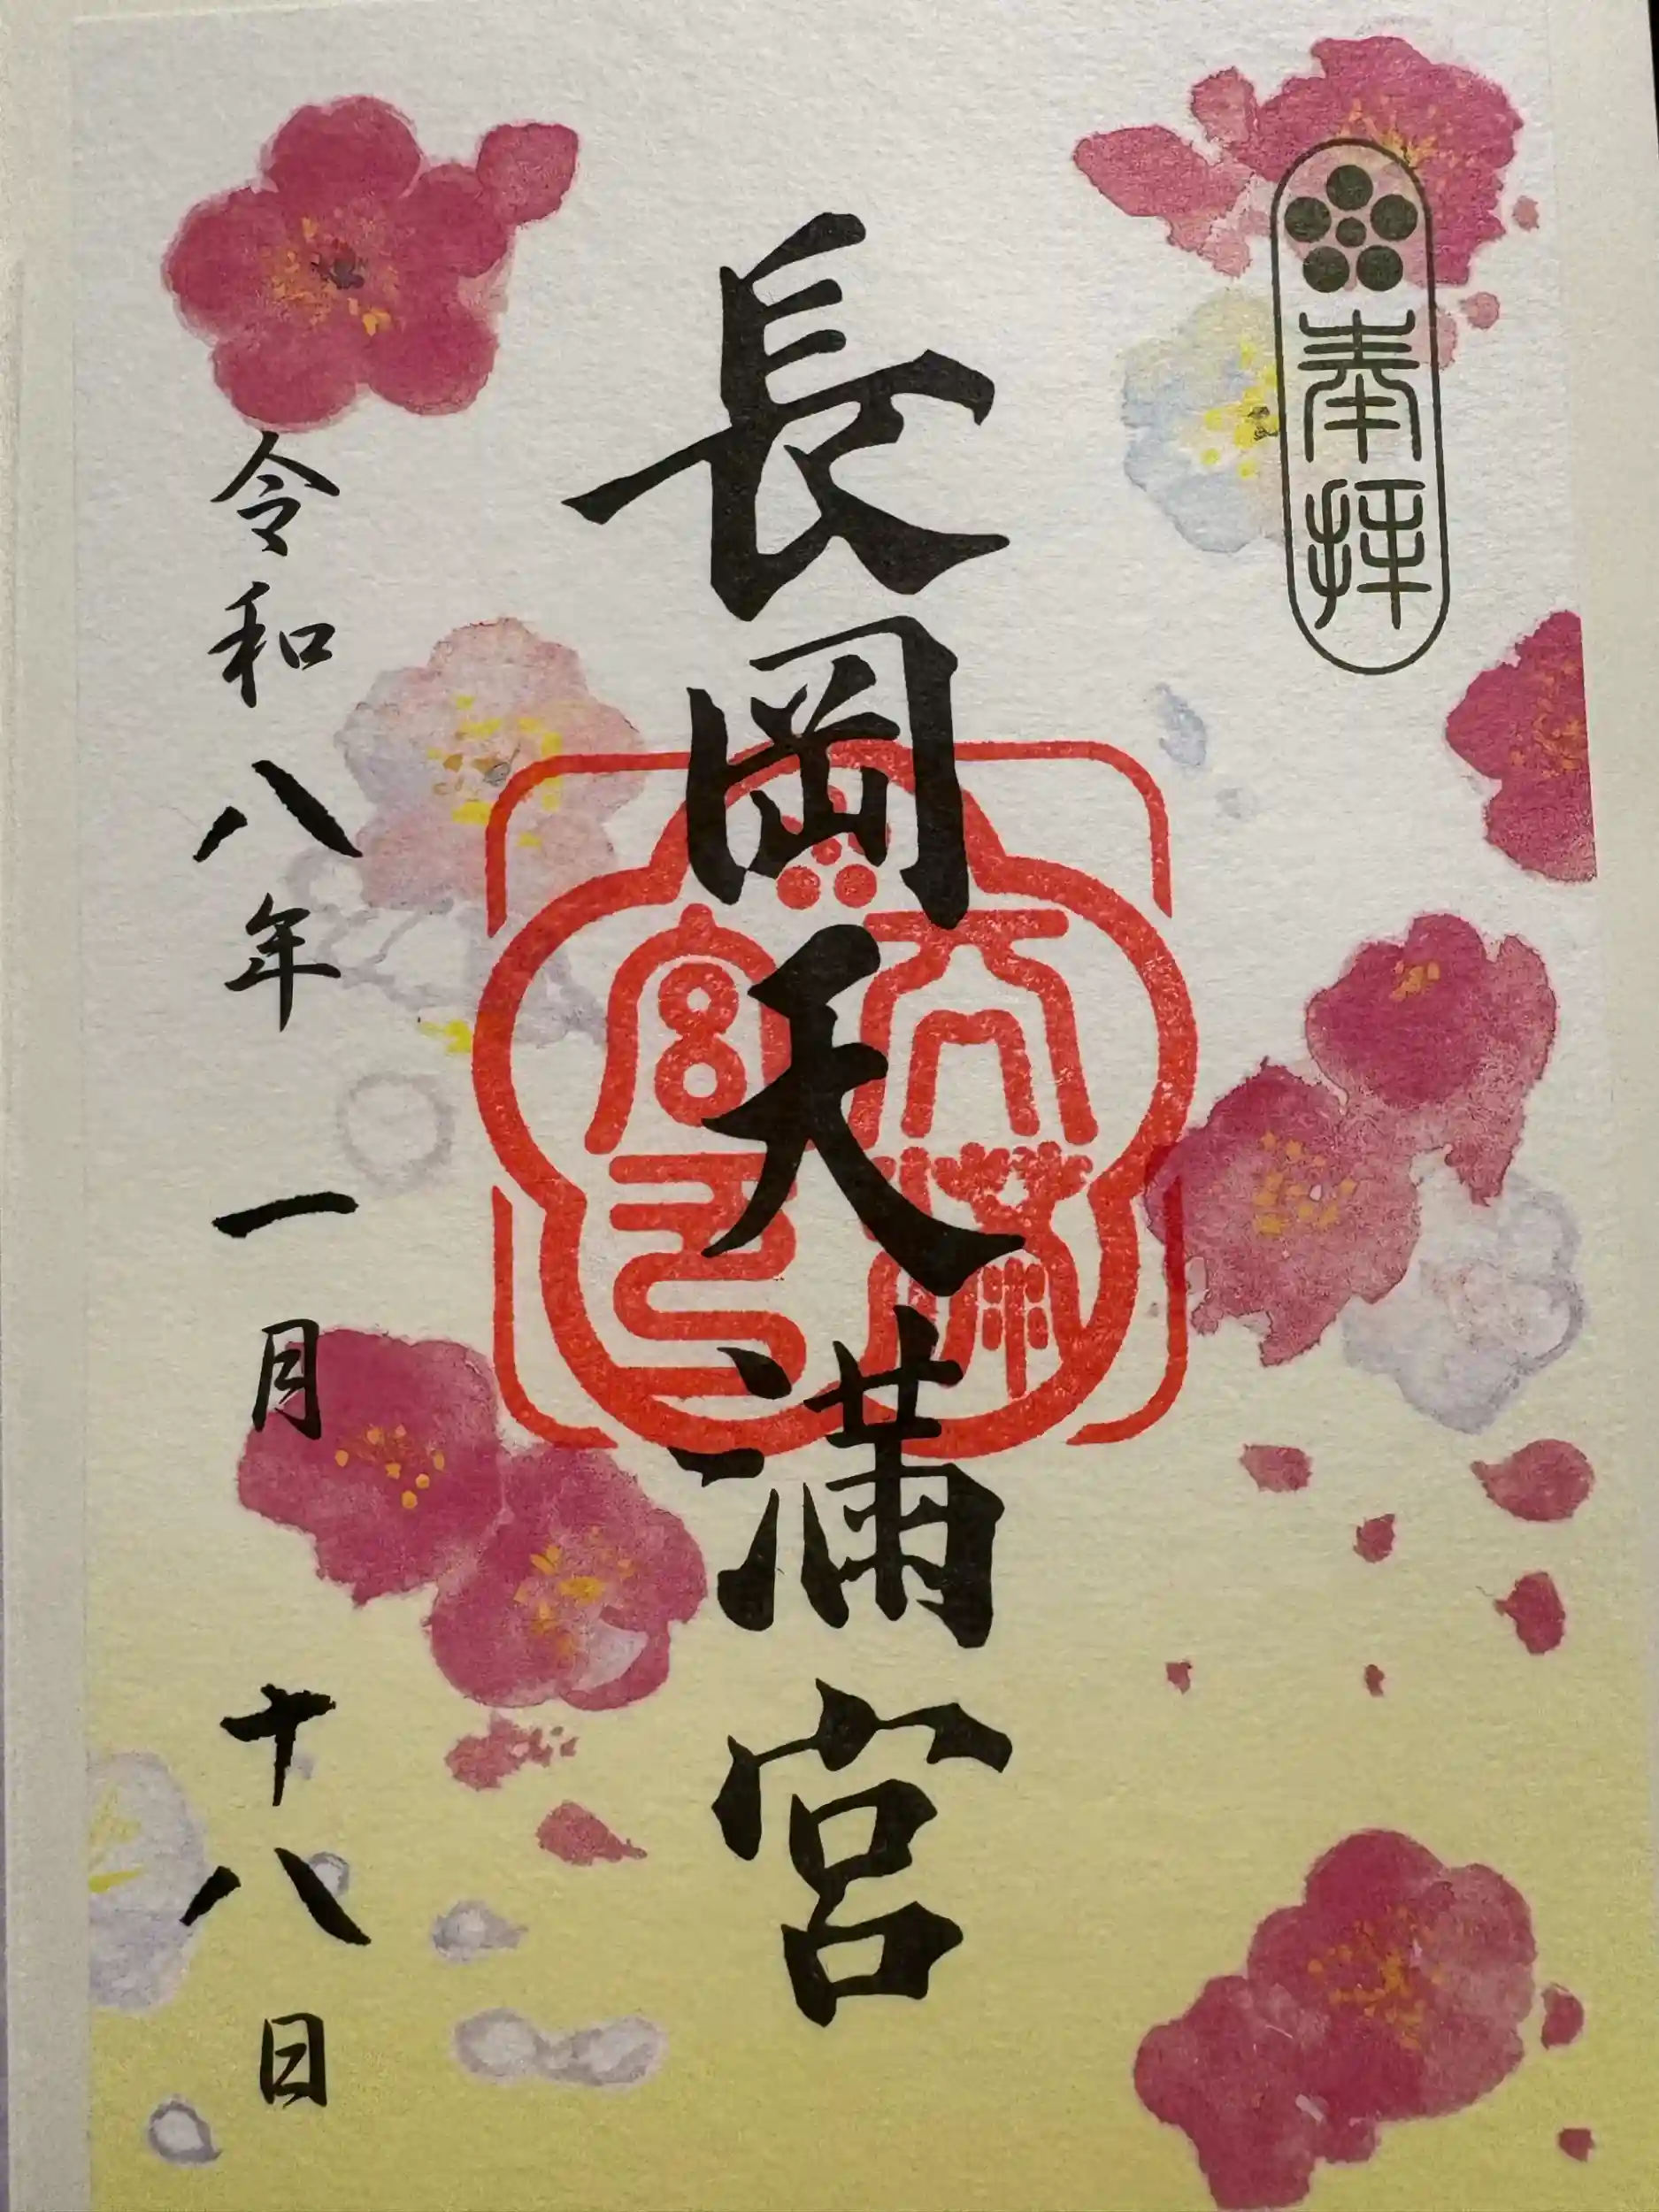 奉拝
長岡天満宮
天満
宮印
令和八年一月十八日